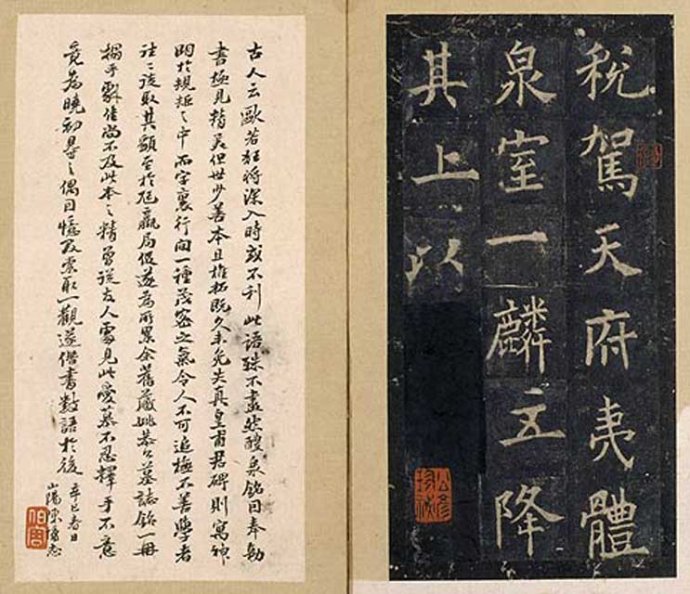 税駕天府夷體
泉室一麟五降
其上以
古人云歐若狂將深入時或不利此語殊不盡然醴泉銘因奉勅
書極見精美但世少善本且椎拓既久未免失真皇甫君碑則寓神
明於規矩之中而字裏行間一種茂密之氣令人不可追極不善學者
往々取其顯至於尪羸局促遂為所累余舊藏姚恭公墓誌銘一冊
搨手佳尚不及此本之精曾從友人處見此愛慕不忍釋手不意
竟為曉初得之偶因憶及索取一觀遂僭書數語於後
辛巳春日
山陽